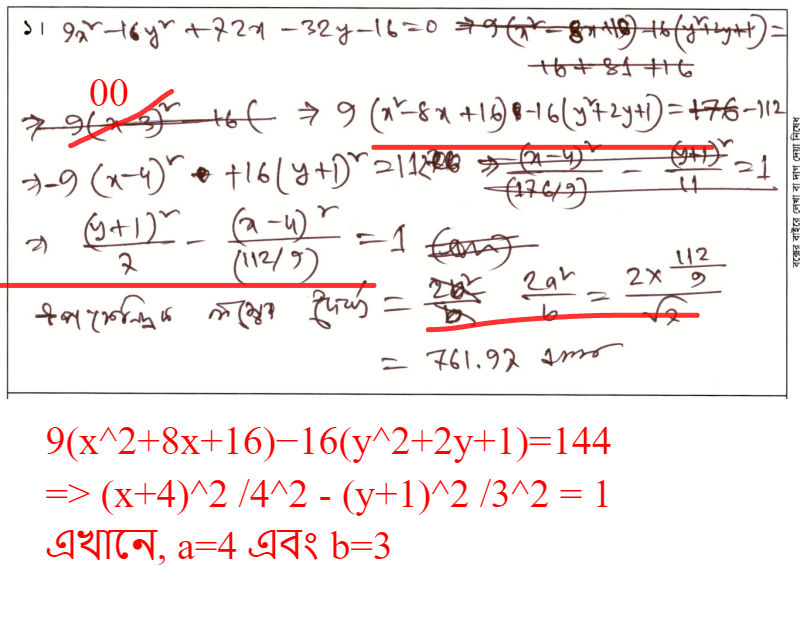 ১। 9x² - 16y² + 72x - 32y - 16 = 0 ⇒ 9(x² - 8x + 16) - 16(y² + 2y + 1) =
16 + 81 + 16
00
⇒ 9(x - 3)² - 16( ⇒ 9 (x² - 8x + 16) - 16(y² + 2y + 1) = 176 - 112
⇒ -9 (x - 4)² + 16(y + 1)² = 112 ⇒ (x - 4)²/(176/9) - (y + 1)²/11 = 1
⇒ (y + 1)²/7 - (x - 4)²/(112/9) = 1 (Ans)
উপকেন্দ্রিক লম্বের দৈর্ঘ্য = 2a²/b 2a²/b = 2 × 112/9 / √7
= 761.97
9(x^2+8x+16)−16(y^2+2y+1)=144
=> (x+4)^2 /4^2 - (y+1)^2 /3^2 = 1
এখানে, a=4 এবং b=3
বক্সের বাইরে লেখা বা দাগ দেয়া নিষেধ